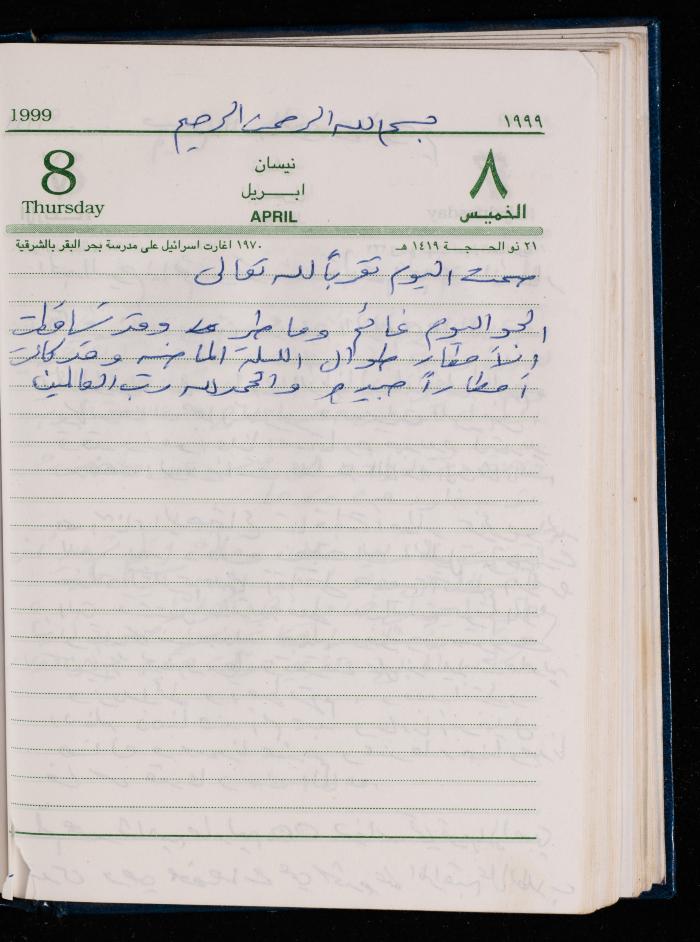 1999 بسم الله الرحمن الرحيم ١٩٩٩
8 نيسان ٨
ابريل
Thursday APRIL الخميس
٢١ ذو الحجـــة ١٤١٩ هـ ١٩٧٠ اغارت اسرائيل على مدرسة بحر البقر بالشرقية
صمت اليوم تقرباً لله تعالى
الجو اليوم غائم وماطر وقد تساقطت
الأمطار طوال الليلة الماضية وقد كانت
أمطاراً والحمد لله رب العالمين